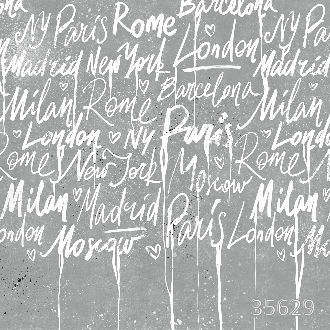 Barcelona
NY Paris Rome London
Madrid New York Madrid
Barcelona
Milan Rome Milan
London NY Paris London
Rome New York Moscow Rome
Milan Madrid Milan
London Moscow Paris London
35629